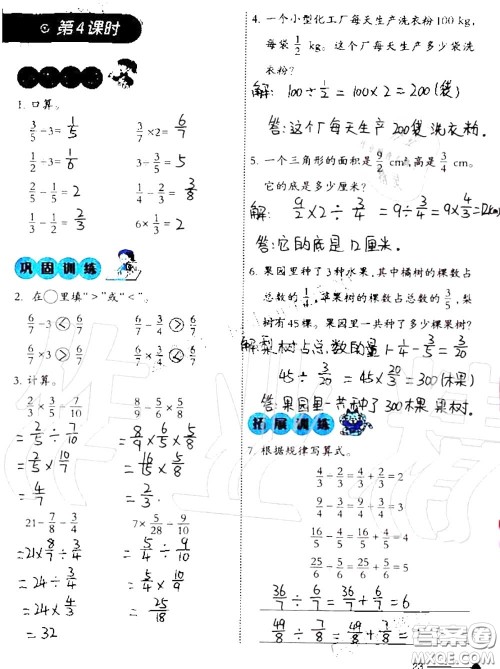 第4课时
1. 口算。
3/5÷3=1/5    3/7×2=6/7
1/2÷3=1/6    3÷3/5=5
2/5÷1/5=2    1/4÷2/3=3/8
1/3÷1/2=2/3    6×1/3=2
巩固训练
2. 在○里填“>”或“<”。
6/7÷3<6/7    6/7÷3/4>6/7
6/7×3>6/7    6/7×3/4<6/7
3. 计算。
2/3×3/5÷7/10    8/9×3/5÷2/3
=2/5÷7/10
=2/5×10/7
=4/7    =4/5
21÷7/8÷3/4    7×5/28÷9/10
=21×8/7÷3/4    =5/4÷9/10
=24÷3/4    =5/4×10/9
=24×4/3
=32
4. 一个小型化工厂每天生产洗衣粉100 kg,
每袋1/2 kg。这个厂每天生产多少袋洗
衣粉?
解:100÷1/2=100×2=200(袋)
答:这个厂每天生产200袋洗衣粉.
5. 一个三角形的面积是9/2 cm²,高是3/4 cm。
它的底是多少厘米?
解:9/2×2÷3/4=9÷3/4=9×4/3=12(cm)
答:它的底是12厘米.
6. 果园里种了3种水果,其中橘树的棵数占
总数的1/4,苹果树的棵数占总数的3/5,梨
树有45棵。果园里一共种了多少棵果树?
解梨树占总数的量1-1/4-3/5=3/20
45÷3/20=45×20/3=300(棵)
答:果园里一共种了300棵果树.
拓展训练
7. 根据规律写算式。
4/3÷2/3=4/3+2/3=2
9/4÷3/4=9/4+3/4=3
16/5÷4/5=16/5+4/5=4
25/6÷5/6=25/6+5/6=5
36/7÷6/7=36/7+6/7=6
49/8÷7/8=49/8+7/8=
23
答案圈
MXQE.COM